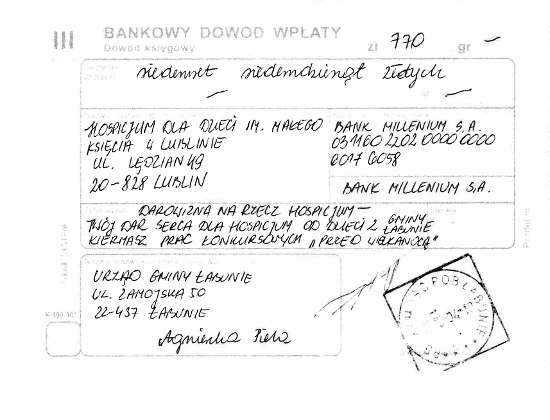 III BANKOWY DOWÓD WPŁATY
Dowód księgowy zł 770 gr —
siedemset siedemdziesiąt złotych
— gr —
HOSPICJUM DLA DZIECI IM. MAŁEGO
KSIĘCIA W LUBLINIE
UL. LĘDZIAN 49
20-828 LUBLIN
BANK MILLENIUM S.A.
03 1160 2202 0000 0000
6017 6058
BANK MILLENIUM S.A.
DAROWIZNA NA RZECZ HOSPICJUM —
TWÓJ DAR SERCA DLA HOSPICJUM OD DZIECI Z GMINY ŁABUNIE
KIERMASZ PRAC KONKURSOWYCH „PRZED WIELKANOCĄ"
URZĄD GMINY ŁABUNIE
UL. ZAMOJSKA 50
22-437 ŁABUNIE
Agnieszka